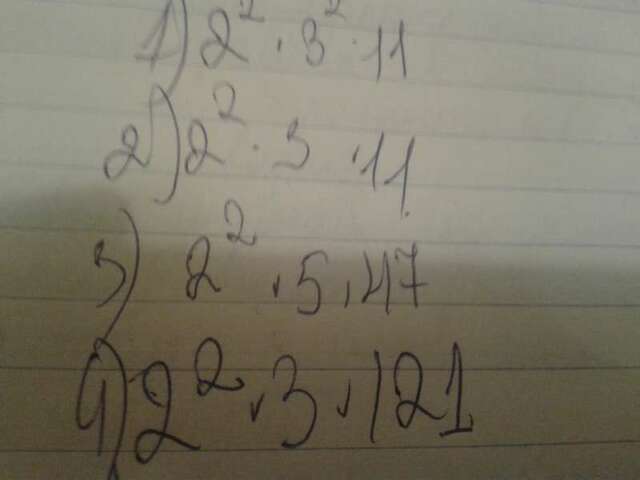 1) 2² · 3² · 11
2) 2² · 3 · 11
3) 2² · 5 · 47
4) 2² · 3 · 121